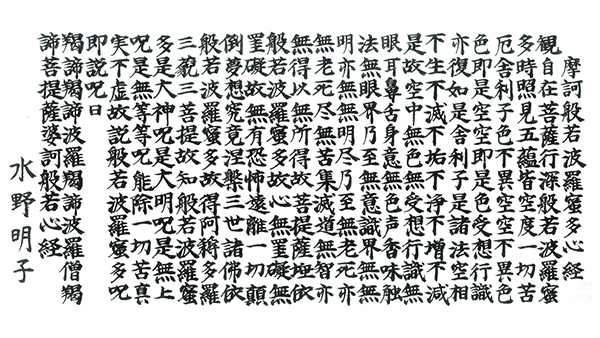 摩訶般若波羅蜜多心経
観自在菩薩行深般若波羅蜜
多時照見五蘊皆空度一切苦
厄舎利子色不異空空不異色
色即是空空即是色受想行識
亦復如是舎利子是諸法空相
不生不滅不垢不浄不増不減
是故空中無色無受想行識無
眼耳鼻舌身意無色声香味触
法無眼界乃至無意識界無無
明亦無無明尽乃至無老死亦
無老死尽無苦集滅道無智亦
無得以無所得故菩提薩埵依
般若波羅蜜多故心無罣礙無
罣礙故無有恐怖遠離一切顛
倒夢想究竟涅槃三世諸佛依
般若波羅蜜多故得阿耨多羅
三藐三菩提故知般若波羅蜜
多是大神呪是大明呪是無上
呪是無等等呪能除一切苦真
実不虚故説般若波羅蜜多呪
即説呪曰
羯諦羯諦波羅羯諦波羅僧羯
諦菩提薩婆訶般若心経
水野明子